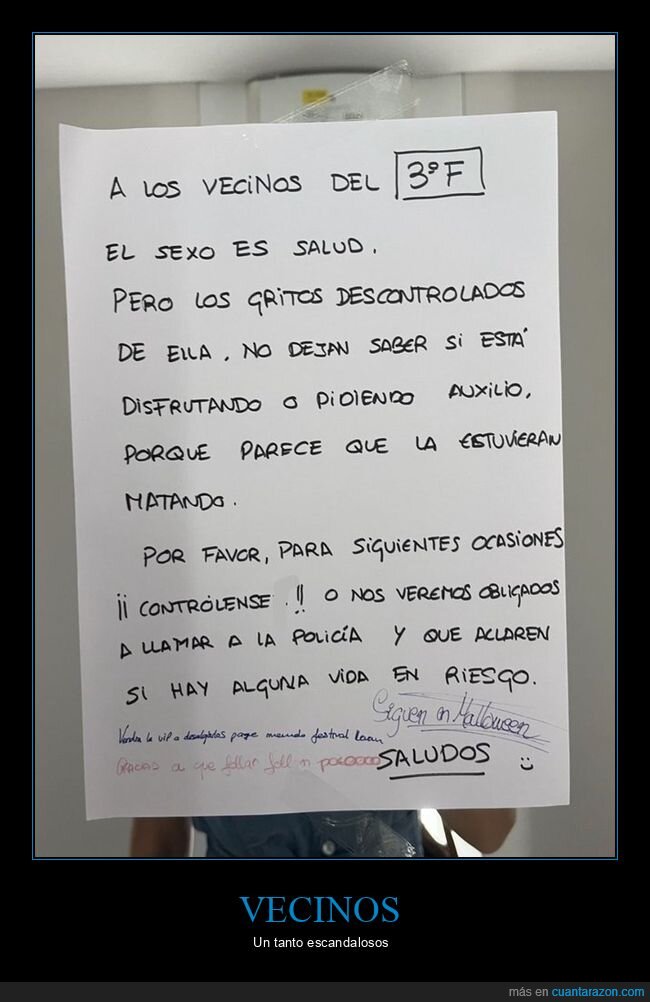 A LOS VECINOS DEL 3ºF
EL SEXO ES SALUD.
PERO LOS GRITOS DESCONTROLADOS
DE ELLA, NO DEJAN SABER SI ESTÁ
DISFRUTANDO O PIDIENDO AUXILIO,
PORQUE PARECE QUE LA ESTUVIERAN
MATANDO.
POR FAVOR, PARA SIGUIENTES OCASIONES
¡¡CONTRÓLENSE!! O NOS VEREMOS OBLIGADOS
A LLAMAR A LA POLICÍA Y QUE ACLAREN
SI HAY ALGUNA VIDA EN RIESGO.
Siguen en Halloween
la vip a menudo festival
a que follar
SALUDOS
VECINOS
Un tanto escandalosos
más en cuantarazon.com